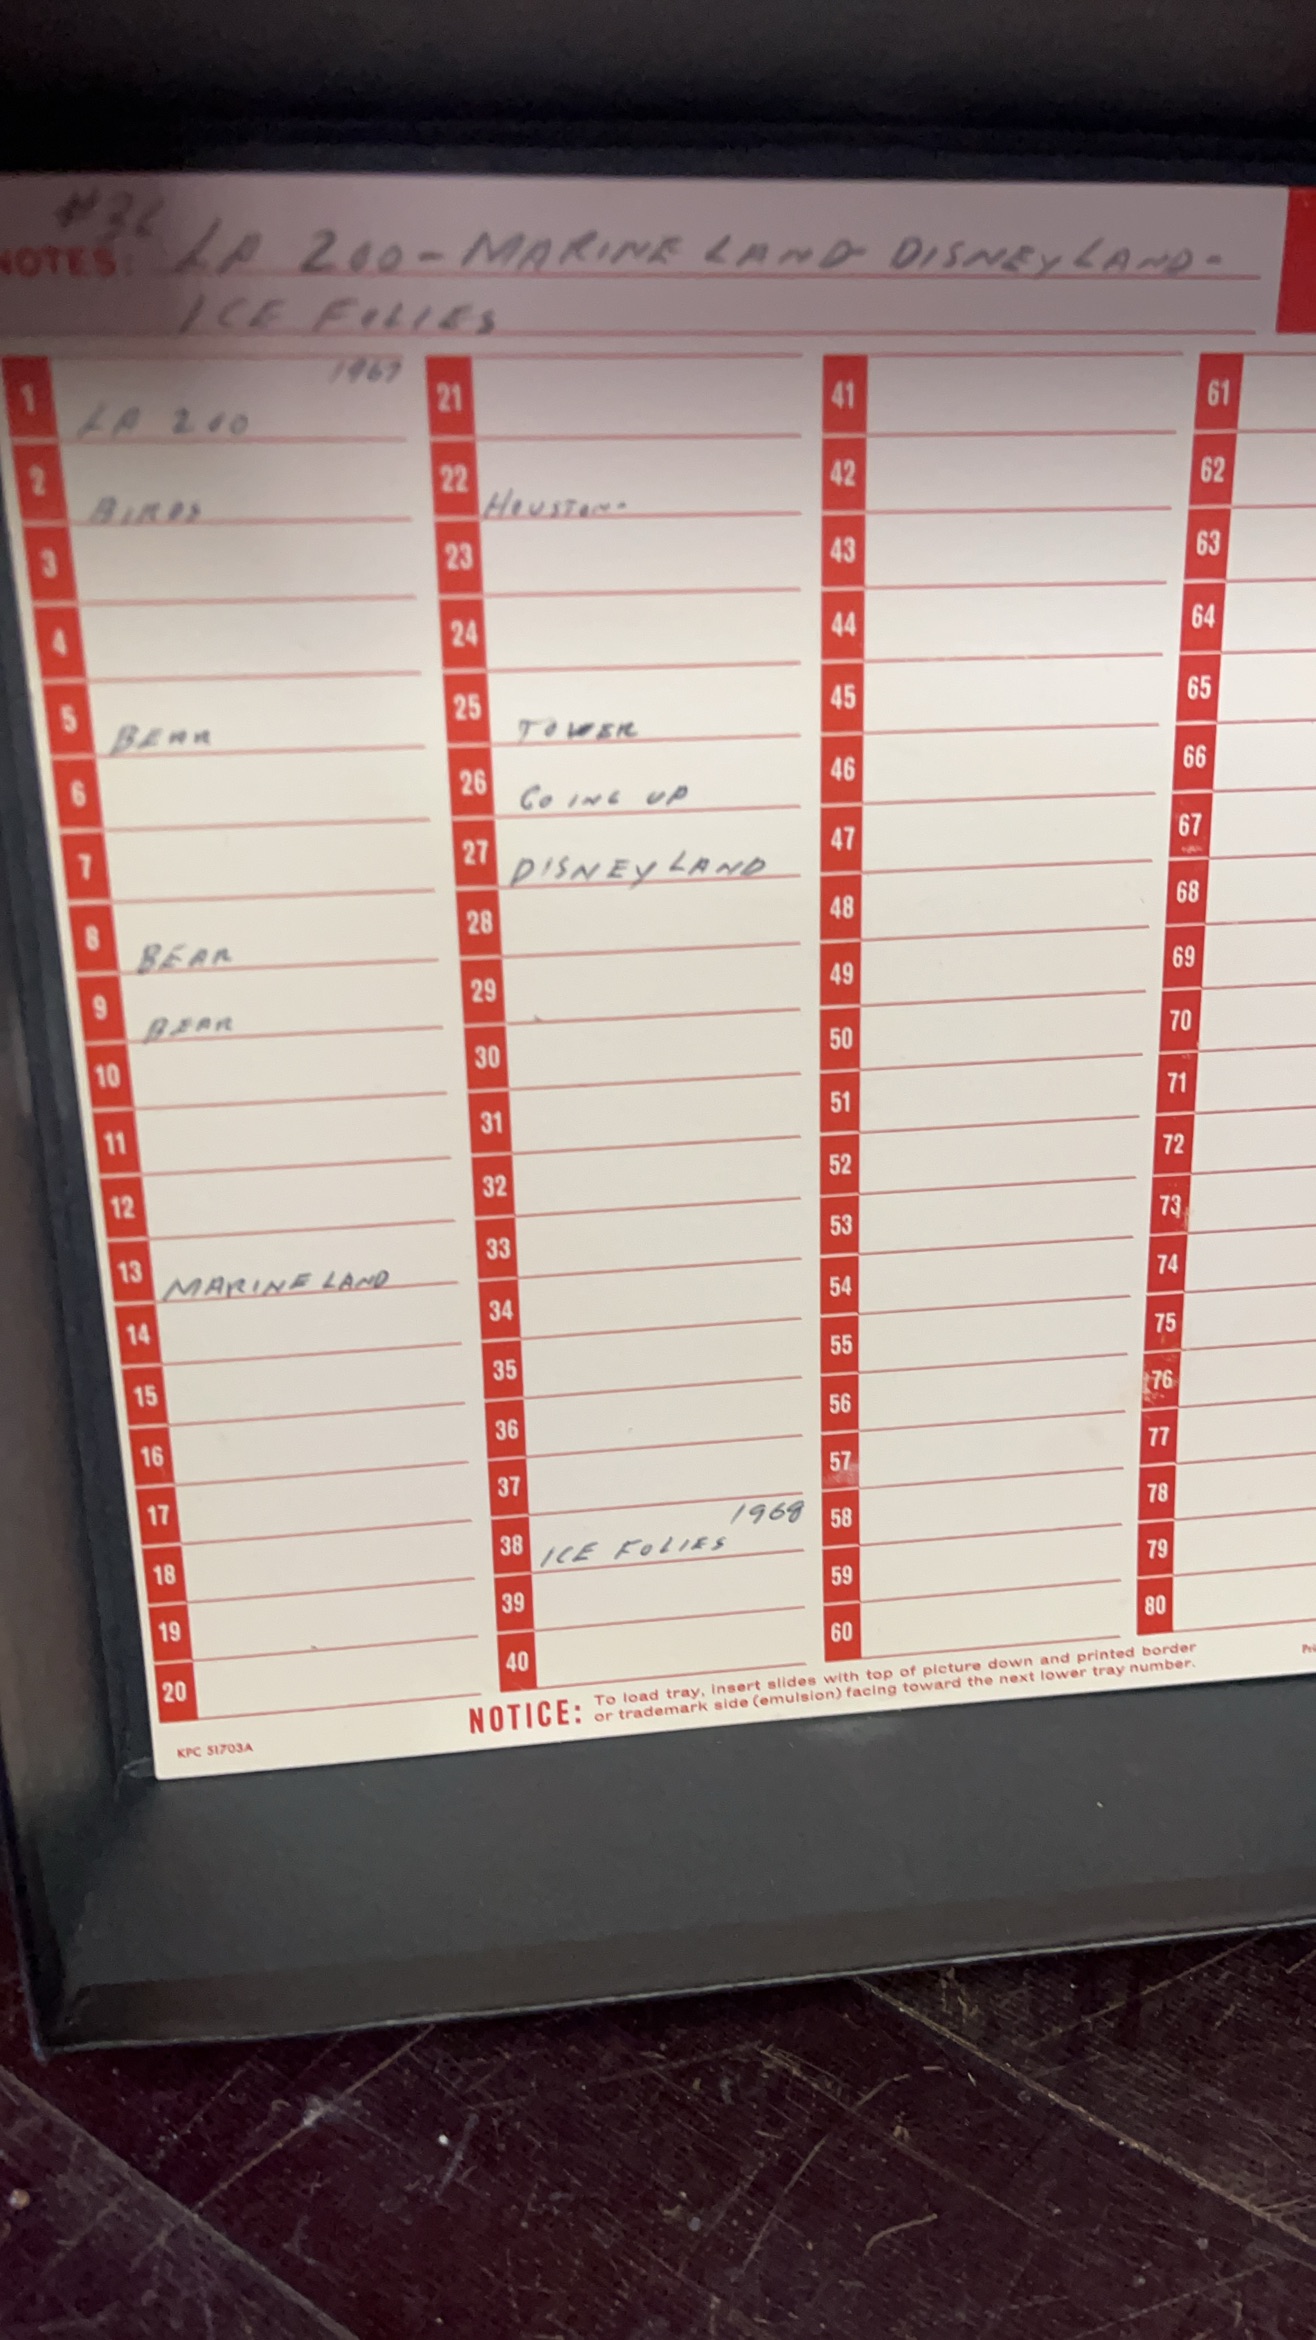 #36
NOTES: LA 200 - MARINE LAND DISNEYLAND -
ICE FOLIES
1967
1 LA 200
2 BIRDS
3
4
5 BEAR
6
7
8 BEAR
9 BEAR
10
11
12
13 MARINE LAND
14
15
16
17
18
19
20
21
22 HOUSTON
23
24
25 TOWER
26 GOING UP
27 DISNEYLAND
28
29
30
31
32
33
34
35
36
37
1968
38 ICE FOLIES
39
40
41
42
43
44
45
46
47
48
49
50
51
52
53
54
55
56
57
58
59
60
61
62
63
64
65
66
67
68
69
70
71
72
73
74
75
76
77
78
79
80
NOTICE: To load tray, insert slides with top of picture down and printed border
or trademark side (emulsion) facing toward the next lower tray number.
KPC 51703A